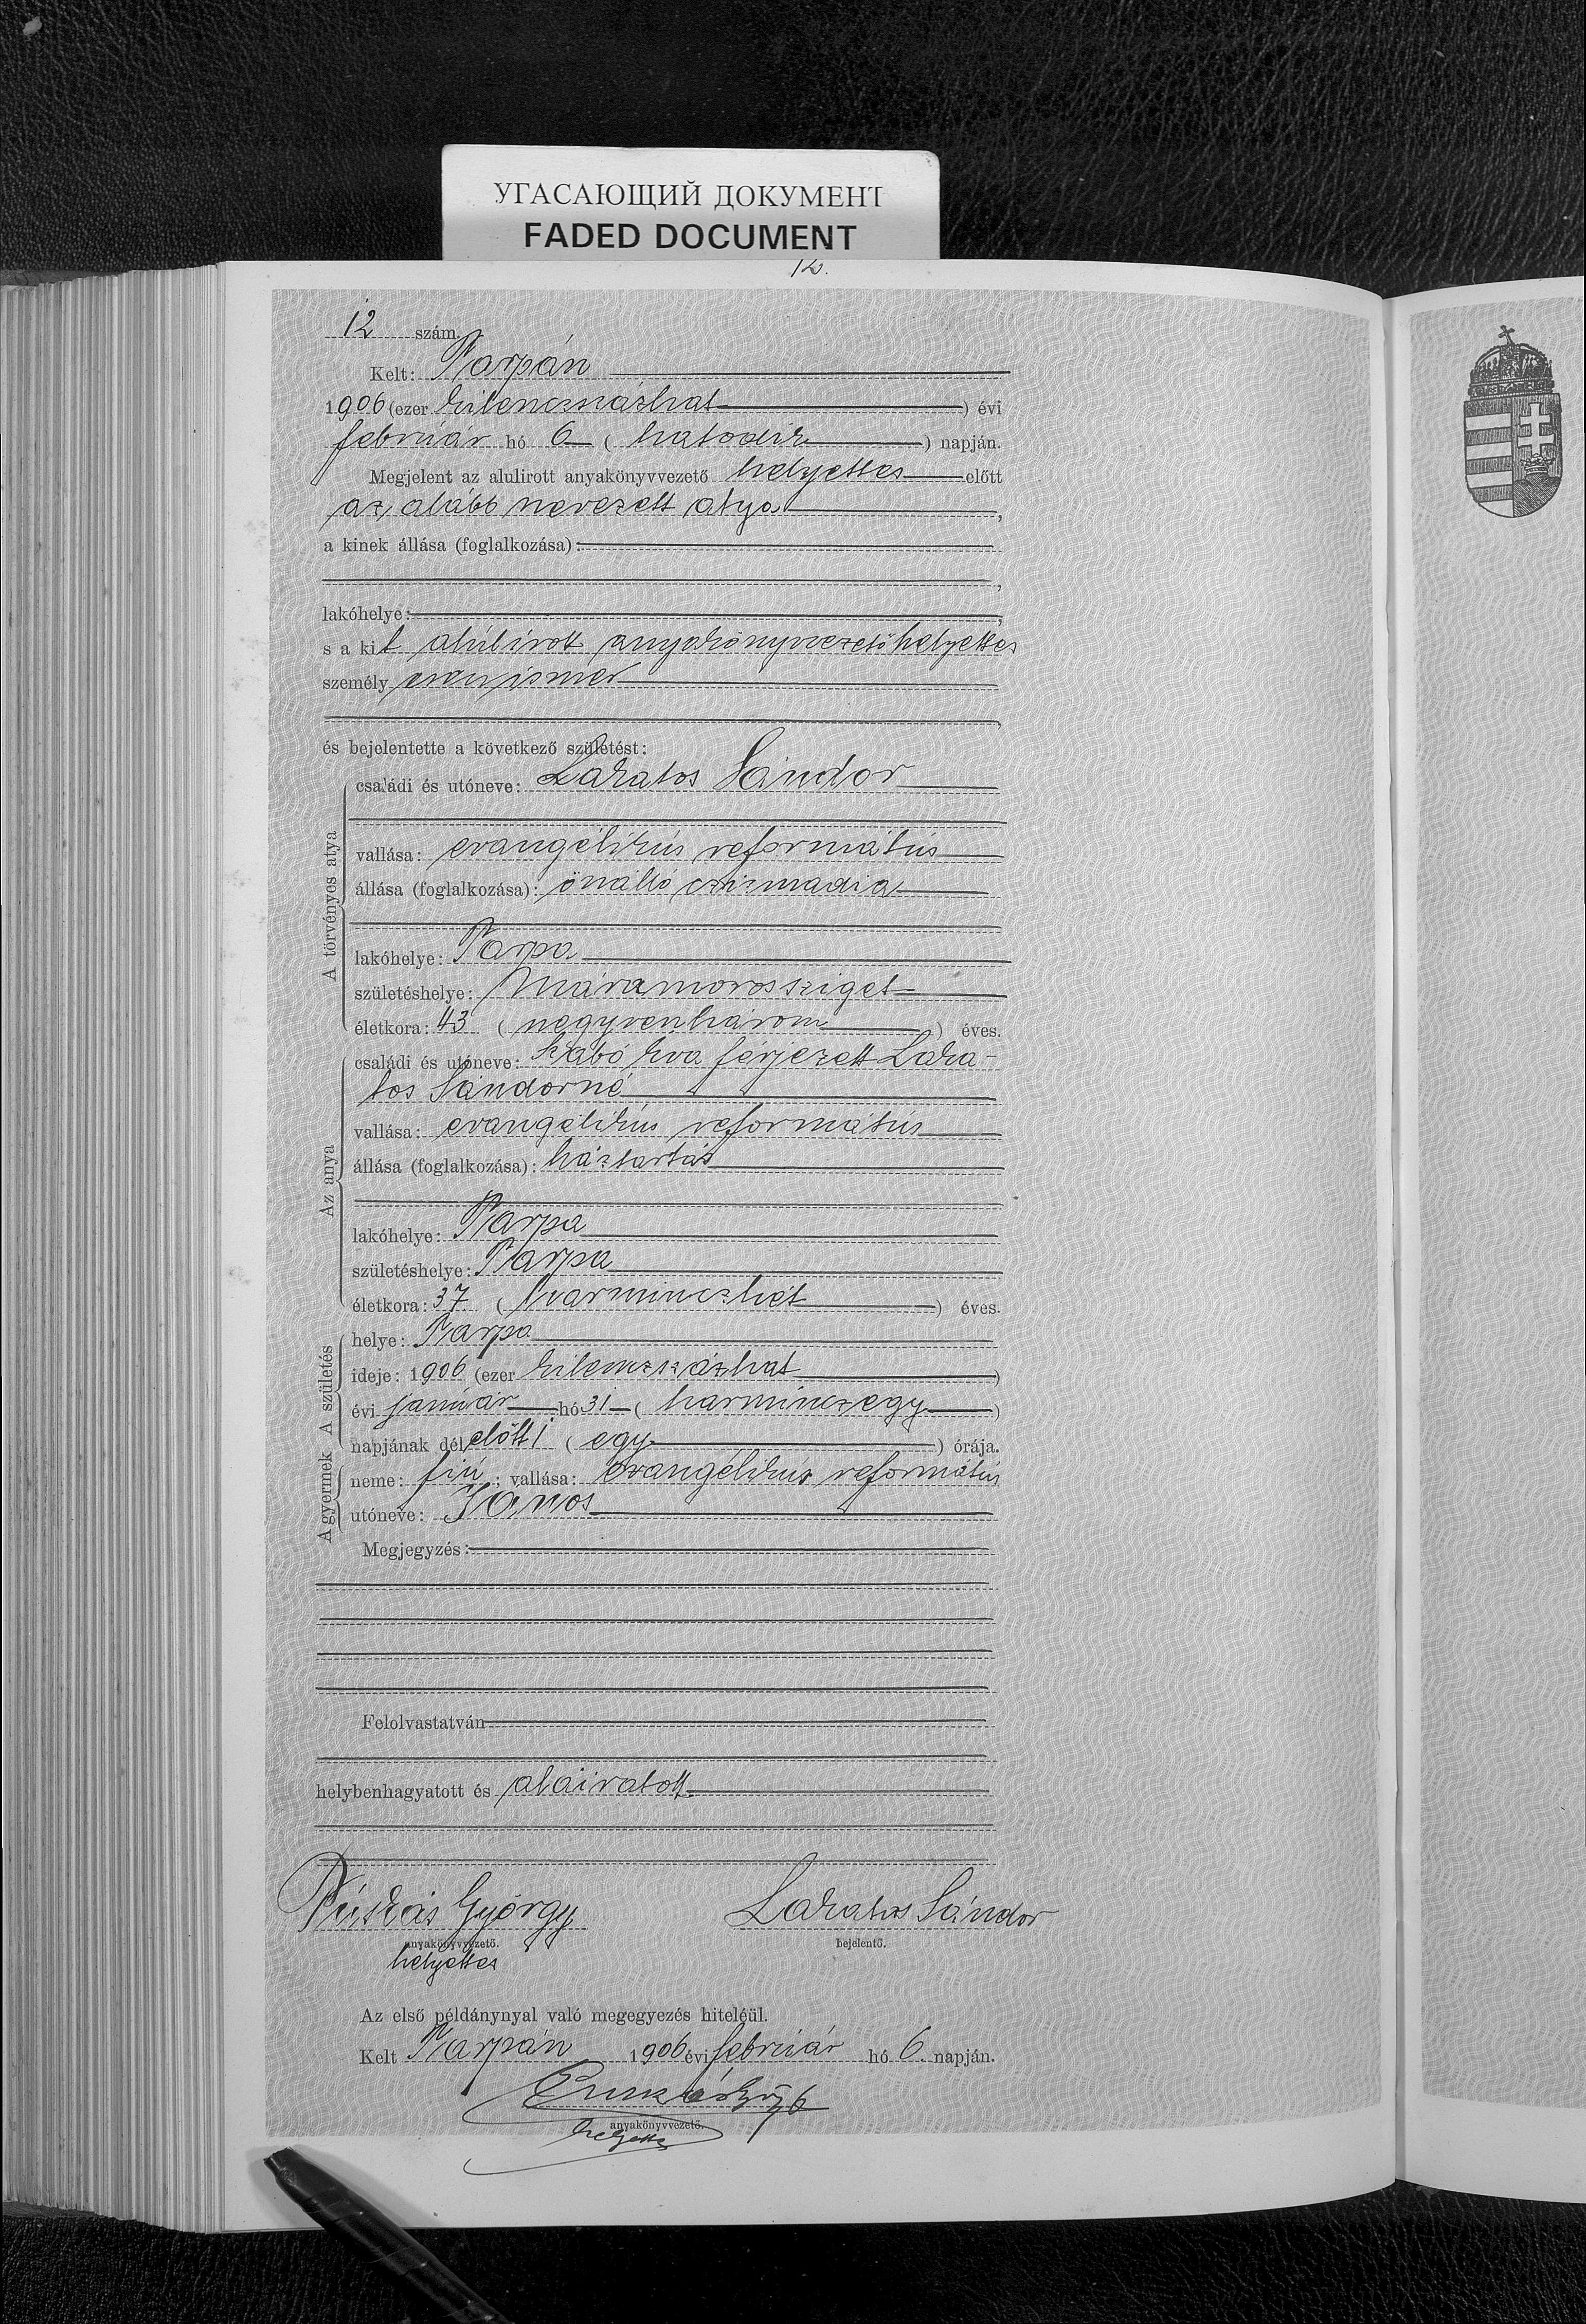 УГАСАЮЩИЙ ДОКУМЕНТ
FADED DOCUMENT
12.
12 szám.
Kelt: Tarpán
1906 (ezer kilenczszázhat) évi
február hó 6 (hatodik) napján.
Megjelent az alulirott anyakönyvvezető helyettes előtt
az alább nevezett atya,
a kinek állása (foglalkozása):
,
lakóhelye:,
s a kit alulírott anyakönyvvezető helyettes
személyesen ismer
,
és bejelentette a következő születést:
A törvényes atya
családi és utóneve: Lakatos Sándor
vallása: evangélikus református
állása (foglalkozása): önálló czizmadia
lakóhelye: Tarpa
születéshelye: Máramorossziget
életkora: 43 (negyvenhárom) éves.
Az anya
családi és utóneve: Szabó Éva férjezett Laka-
tos Sándorné
vallása: evangélikus református
állása (foglalkozása): háztartás
lakóhelye: Tarpa
születéshelye: Tarpa
életkora: 37 (harminczhét) éves.
A születés
helye: Tarpa
ideje: 1906 (ezer kilenczszázhat)
évi január hó 31 (harminczegy)
napjának délelőtti (egy) órája.
A gyermek
neme: fiú; vallása: evangélikus református
utóneve: János
Megjegyzés:
Felolvastatván
helybenhagyatott és aláiratott.
Puskás György
anyakönyvvezető.
helyettes
Lakatos Sándor
bejelentő.
Az első példánynyal való megegyezés hiteléül.
Kelt Tarpán 1906 évi február hó 6. napján.
anyakönyvvezető.
helyettes